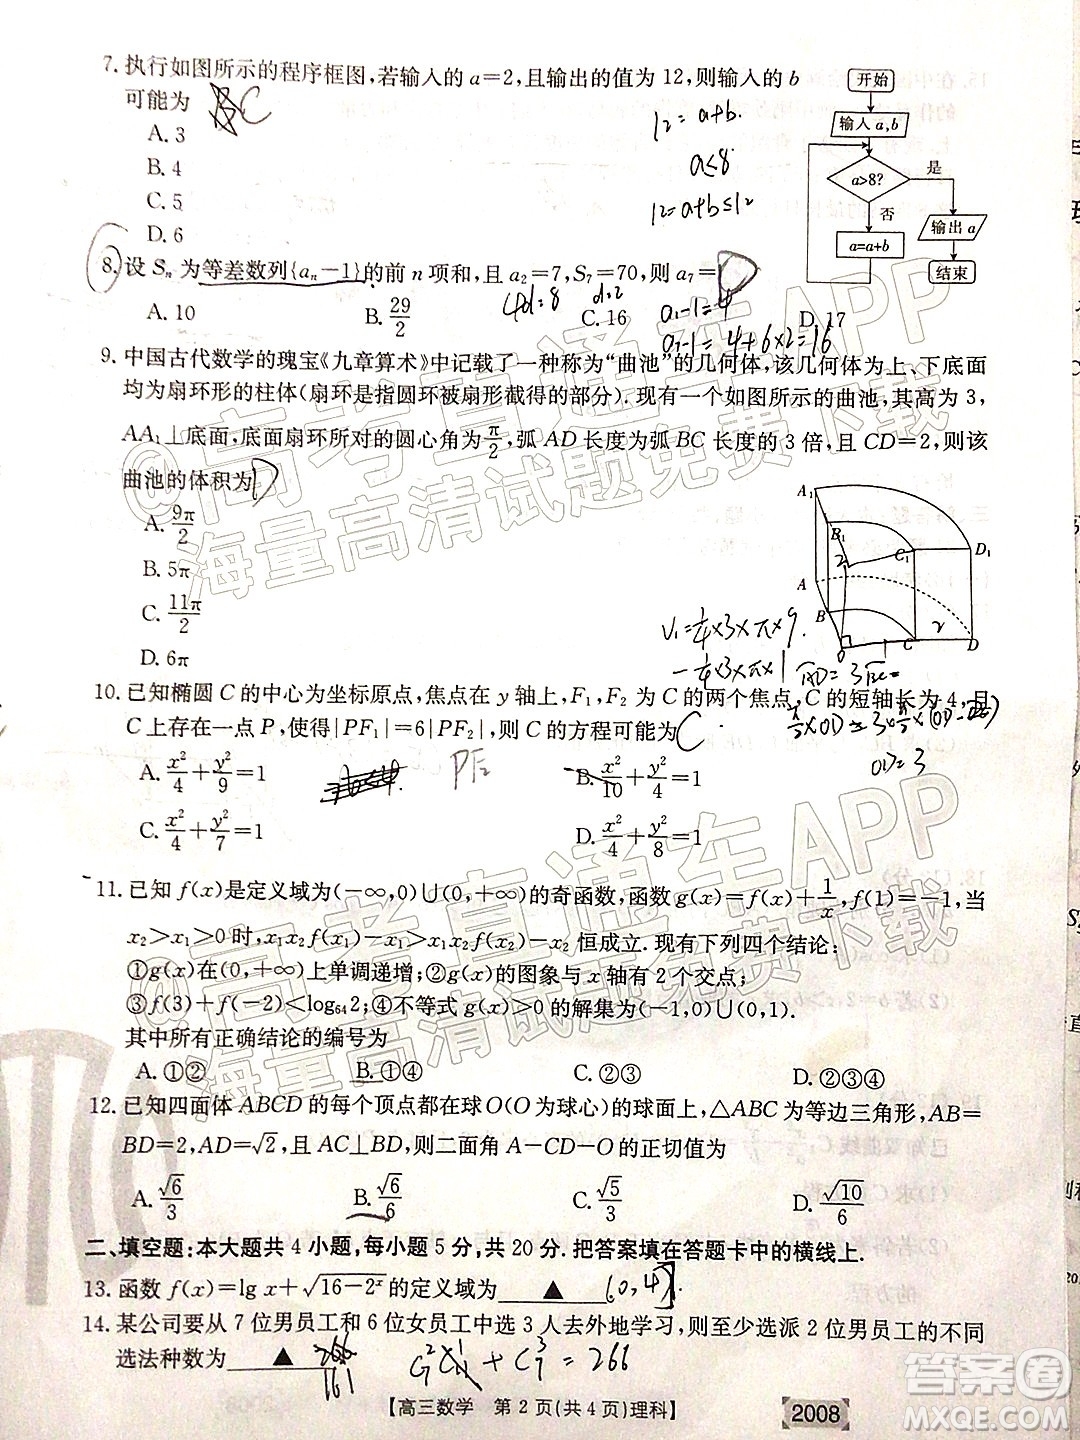 7. 执行如图所示的程序框图,若输入的 a=2,且输出的值为 12,则输入的 b
可能为 C
A. 3
B. 4
C. 5
D. 6
12=a+b.
a≤8
12=a+b≤12
开始
输入 a,b
a>8?
是
否
a=a+b
输出 a
结束
8. 设 Sₙ 为等差数列{aₙ-1}的前 n 项和,且 a₂=7,S₇=70,则 a₇= D
A. 10 B. 29/2 C. 16 D. 17
4d=8 d=2
a₁-1=4
a₇-1=4+6×2=16
9. 中国古代数学的瑰宝《九章算术》中记载了一种称为“曲池”的几何体,该几何体为上、下底面
均为扇环形的柱体(扇环是指圆环被扇形截得的部分). 现有一个如图所示的曲池,其高为 3,
AA₁⊥底面,底面扇环所对的圆心角为π/2,弧 AD 长度为弧 BC 长度的 3 倍,且 CD=2,则该
曲池的体积为 D
A. 9π/2
B. 5π
C. 11π/2
D. 6π
A₁ B₁ C₁ D₁ A B C D
2 0 1
V₁=1/4×3×π×9.
-1/4×3×π×1
10. 已知椭圆 C 的中心为坐标原点,焦点在 y 轴上,F₁,F₂ 为 C 的两个焦点,C 的短轴长为 4,且
C 上存在一点 P,使得|PF₁|=6|PF₂|,则 C 的方程可能为 C
A. x²/4+y²/9=1 B. x²/10+y²/4=1
C. x²/4+y²/7=1 D. x²/4+y²/8=1
PF₂
OD=3
11. 已知 f(x)是定义域为(-∞,0)∪(0,+∞)的奇函数,函数 g(x)=f(x)+1/x,f(1)=-1,当
x₂>x₁>0 时,x₁x₂f(x₁)-x₁x₂f(x₂)>x₁-x₂ 恒成立. 现有下列四个结论:
①g(x)在(0,+∞)上单调递增;②g(x)的图象与 x 轴有 2 个交点;
③f(3)+f(-2)<log₆₄2;④不等式 g(x)>0 的解集为(-1,0)∪(0,1).
其中所有正确结论的编号为
A. ①② B. ①④ C. ②③ D. ③④
12. 已知四面体 ABCD 的每个顶点都在球 O(O 为球心)的球面上,△ABC 为等边三角形,AB=
BD=2,AD=√2,且 AC⊥BD,则二面角 A-CD-O 的正切值为
A. √6/3 B. √6/6 C. √5/3 D. √10/6
二、填空题:本大题共 4 小题,每小题 5 分,共 20 分. 把答案填在答题卡中的横线上.
13. 函数 f(x)=lg x+√(16-2ˣ)的定义域为 ▲ (0,4].
14. 某公司要从 7 位男员工和 6 位女员工中选 3 人去外地学习,则至少选派 2 位男员工的不同
选法种数为 ▲ 266
161
=266
【高三数学 第 2 页(共 4 页)理科】
2008
@高考直通车APP
海量高清试题免费下载
@高考直通车APP
海量高清试题免费下载
答案圈
MXQE.COM